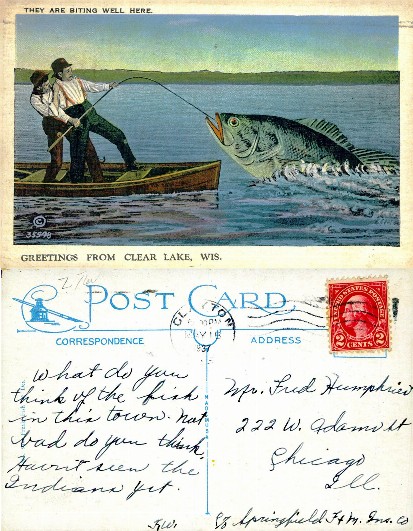 THEY ARE BITING WELL HERE.
©
35598
GREETINGS FROM CLEAR LAKE, WIS.
POST CARD
CORRESPONDENCE
ADDRESS
CLAYTON
UNITED STATES POSTAGE
2 CENTS 2
What do you
think of the fish
in this town. Not
bad do you think.
Havn't seen the
Indians yet.
RW.
Mr. Fred Humphries
222 W. Adams st
Chicago
Ill.
c/o Springfield F & M. Ins. Co